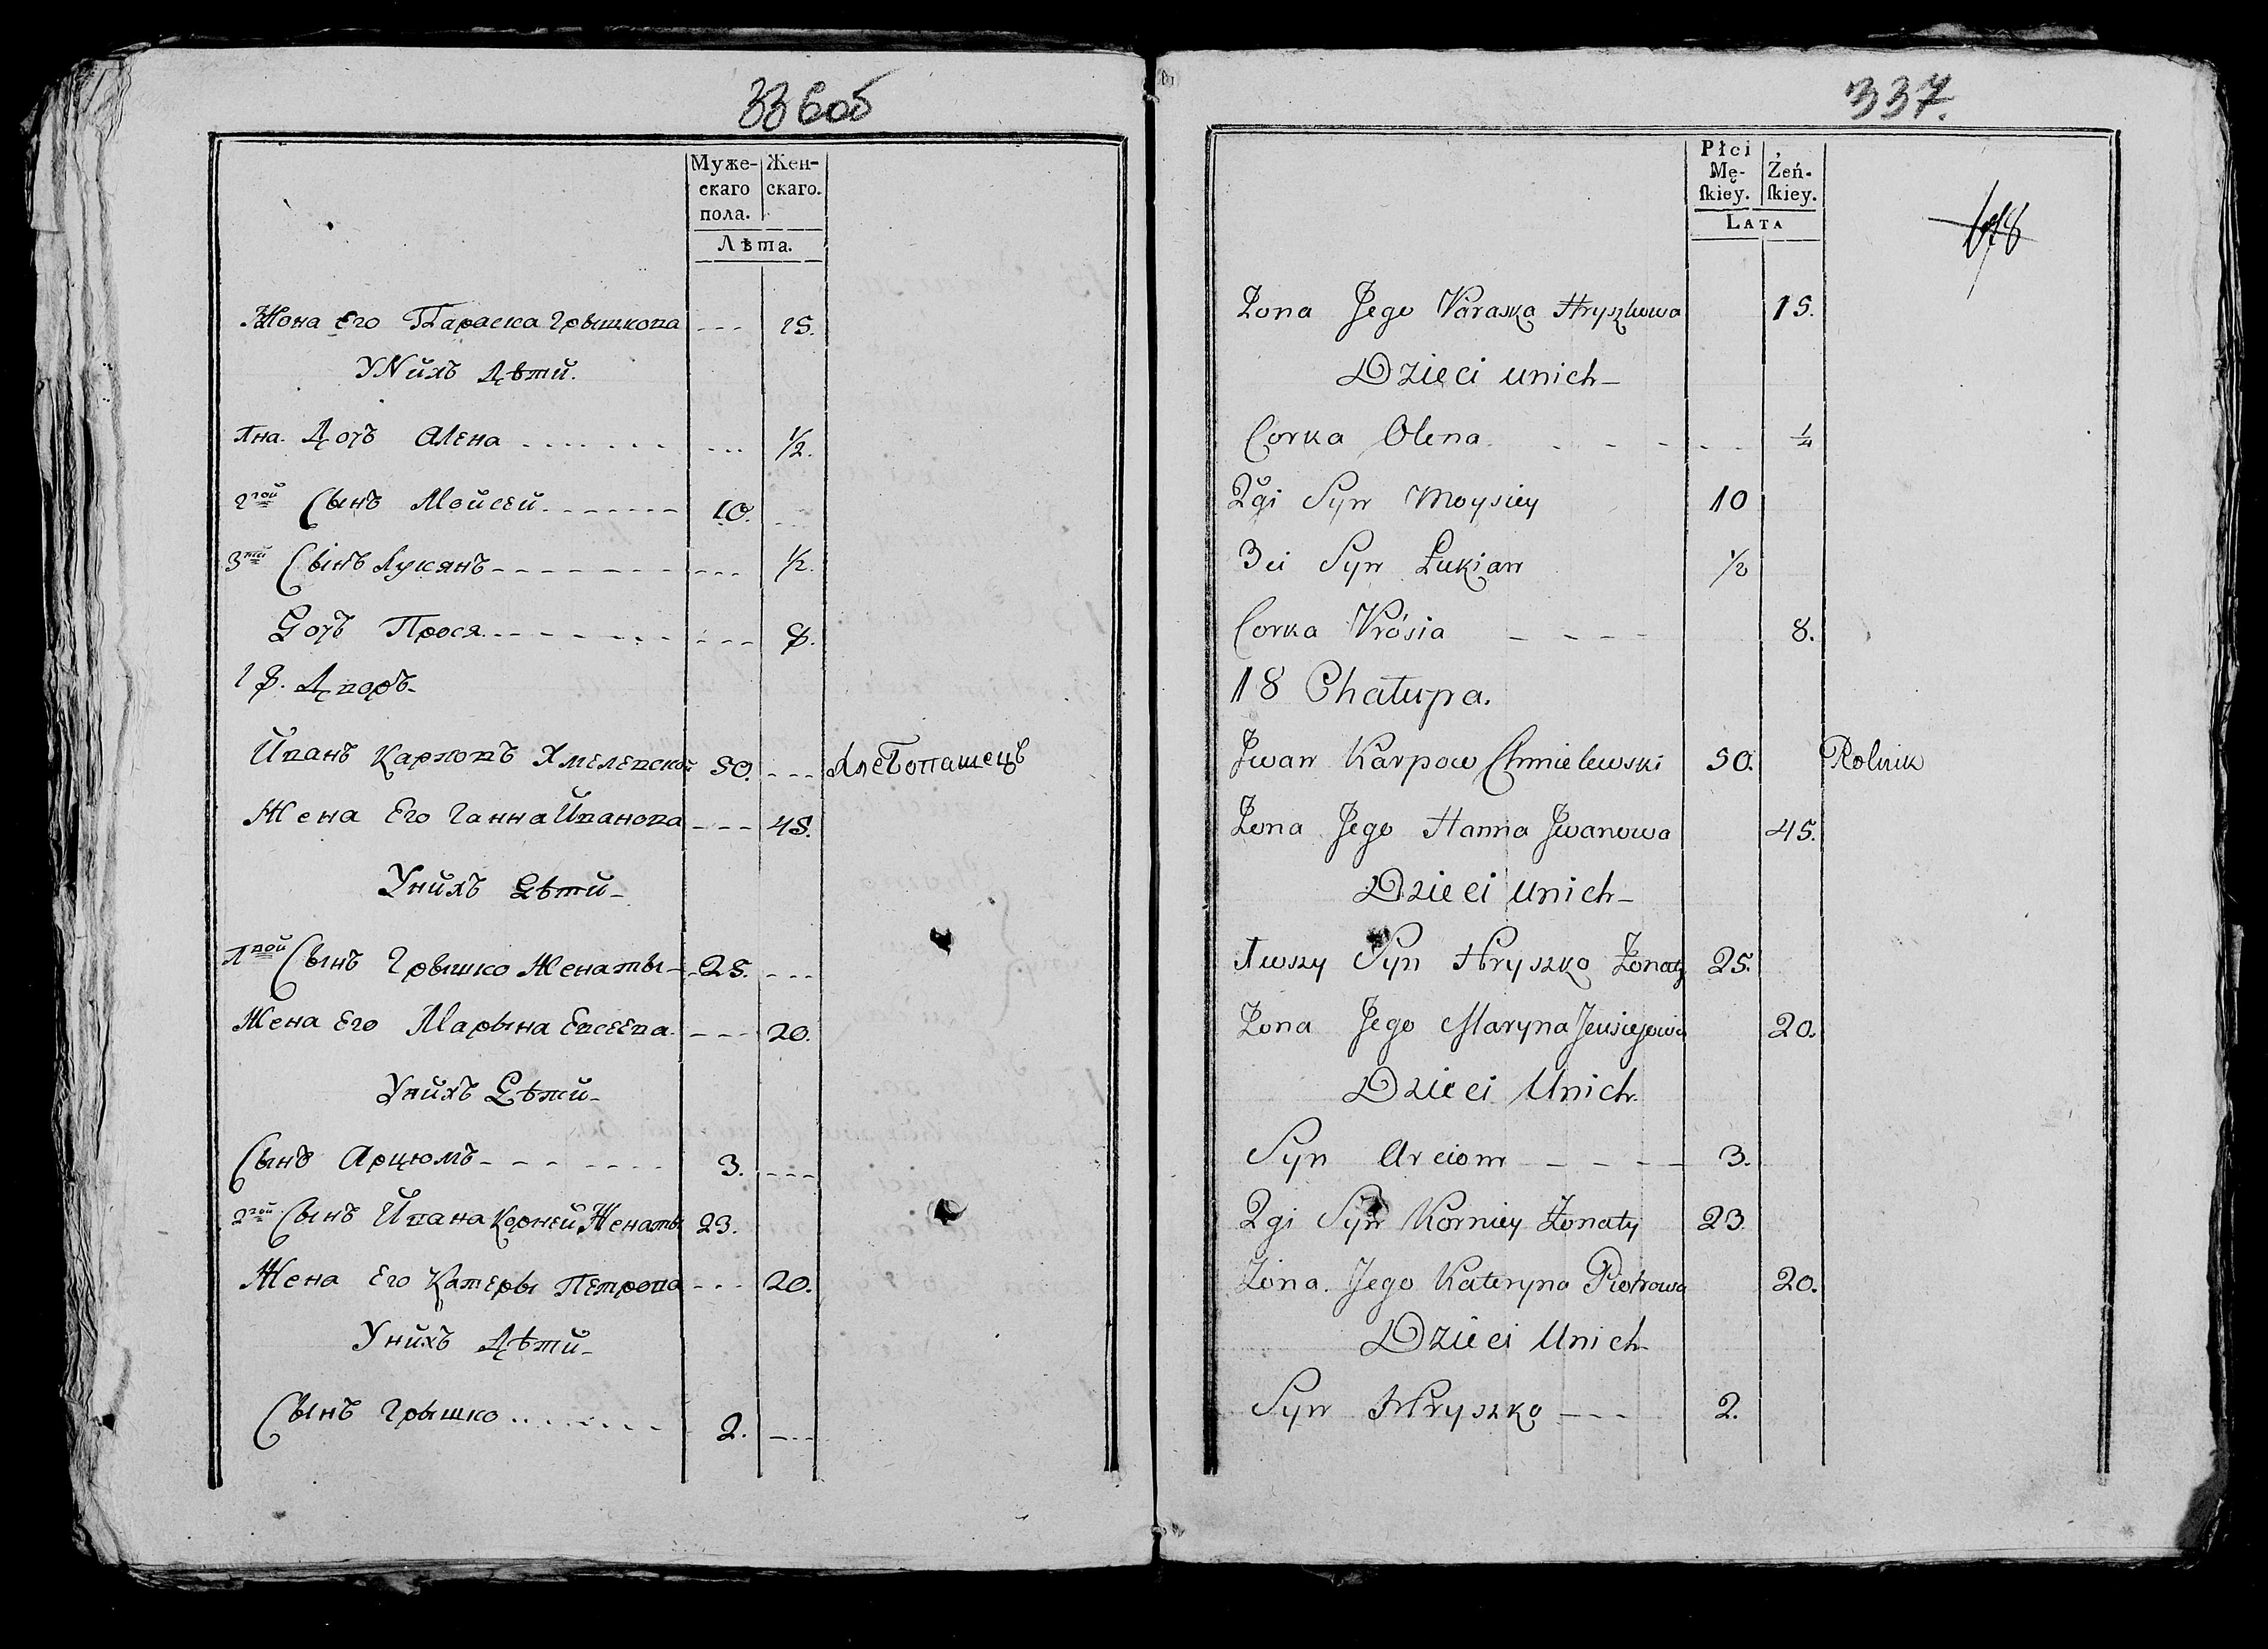 336об
Муже-
скаго
пола.
Жен-
скаго.
Лѣта.
Жона Его Параска Грышкова --- 15.
У Нихъ Дѣти.
1на. Дочъ Алена ....... ... 1/2.
2гой Сынъ Мойсей ....... 10. ...
3тій Сынъ Лукянъ ------- --- 1/2.
Дочъ Прося ------- --- 8.
18. Дворъ-
Иванъ Карповъ Хмелевской 50. --- Хлебопашецъ
Жена Его Ганна Иванова --- 45.
У нихъ Дѣти-
1вой Сынъ Грышко Женаты - 25. ---
Жена Его Марына Евсеева --- 20.
У нихъ Дѣти-
Сынъ Арцюмъ ------- 3. ---
2гой Сынъ Ивана Корней Женаты 23.
Жена Его Катеры Петрова --- 20.
У нихъ Дѣти-
Сынъ Грышко ....... 2. ---
337.
Płci
Mę-
skiey.
Żeń-
skiey.
LATA
Żona Jego Paraska Hryszkowa 15.
Dzieci unich-
Corka Olena - - - - - 1/4
2gi Syn Moysiey 10
3ci Syn Łukian 1/2
Corka Prósia - - - - 8.
18 Chałupa.
Jwan Karpow Chmielewski 50. Rolnik
Żona Jego Hanna Jwanowa 45.
Dzieci unich-
1wszy Syn Hryszko Żonaty 25.
Żona Jego Maryna Jewsiejowa 20.
Dzieci Unich
Syn Arciom - - - - - 3.
2gi Syn Korniey Żonaty 23.
Żona Jego Kateryna Piotrowa 20.
Dzieci Unich
Syn Hryszko - - - 2.